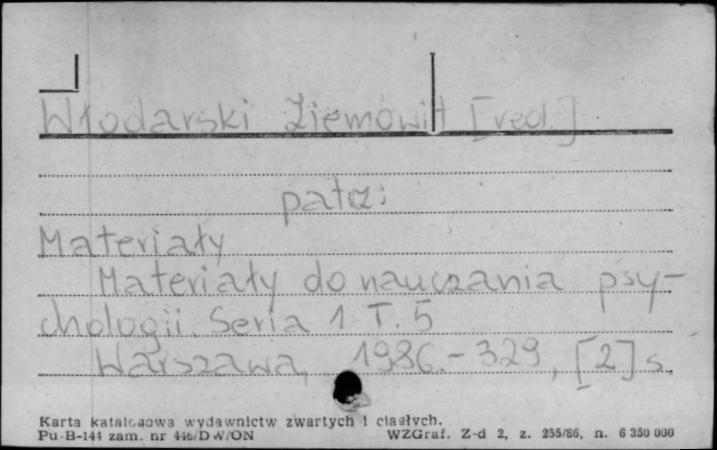 Włodarski Ziemowit [red.]
patrz:
Materiały
Materiały do nauczania psy-
chologii. Seria 1 T. 5
Warszawa, 1986.- 329, [2] s.
Karta katalogowa wydawnictw zwartych i ciągłych.
Pu-B-141 zam. nr 446/DW/ON WZGraf. Z-d 2, z. 255/86, n. 6 350 000